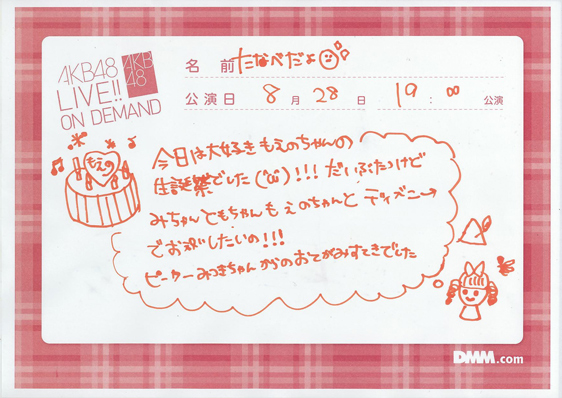 AKB48
LIVE!!
ON DEMAND
AKB
48
名 前 たなべだょ
公演日 8 月 28 日 19 : 00 公演
もえの
今日は大好きもえのちゃんの
生誕祭でした(´ω`)!!! だいぶたつけど
みちゃんともちゃんもえのちゃんと ディズニー→
でお泊したいの!!!
ピーターみつきちゃんからのおてがみすてきでした
DMM.com